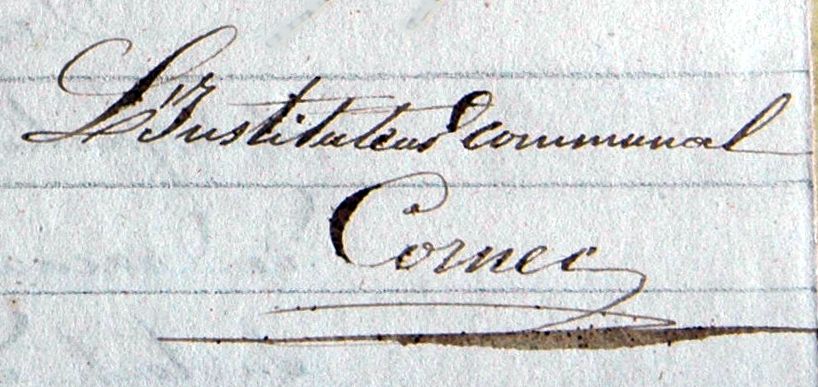 L'Instituteur communal
Cornec